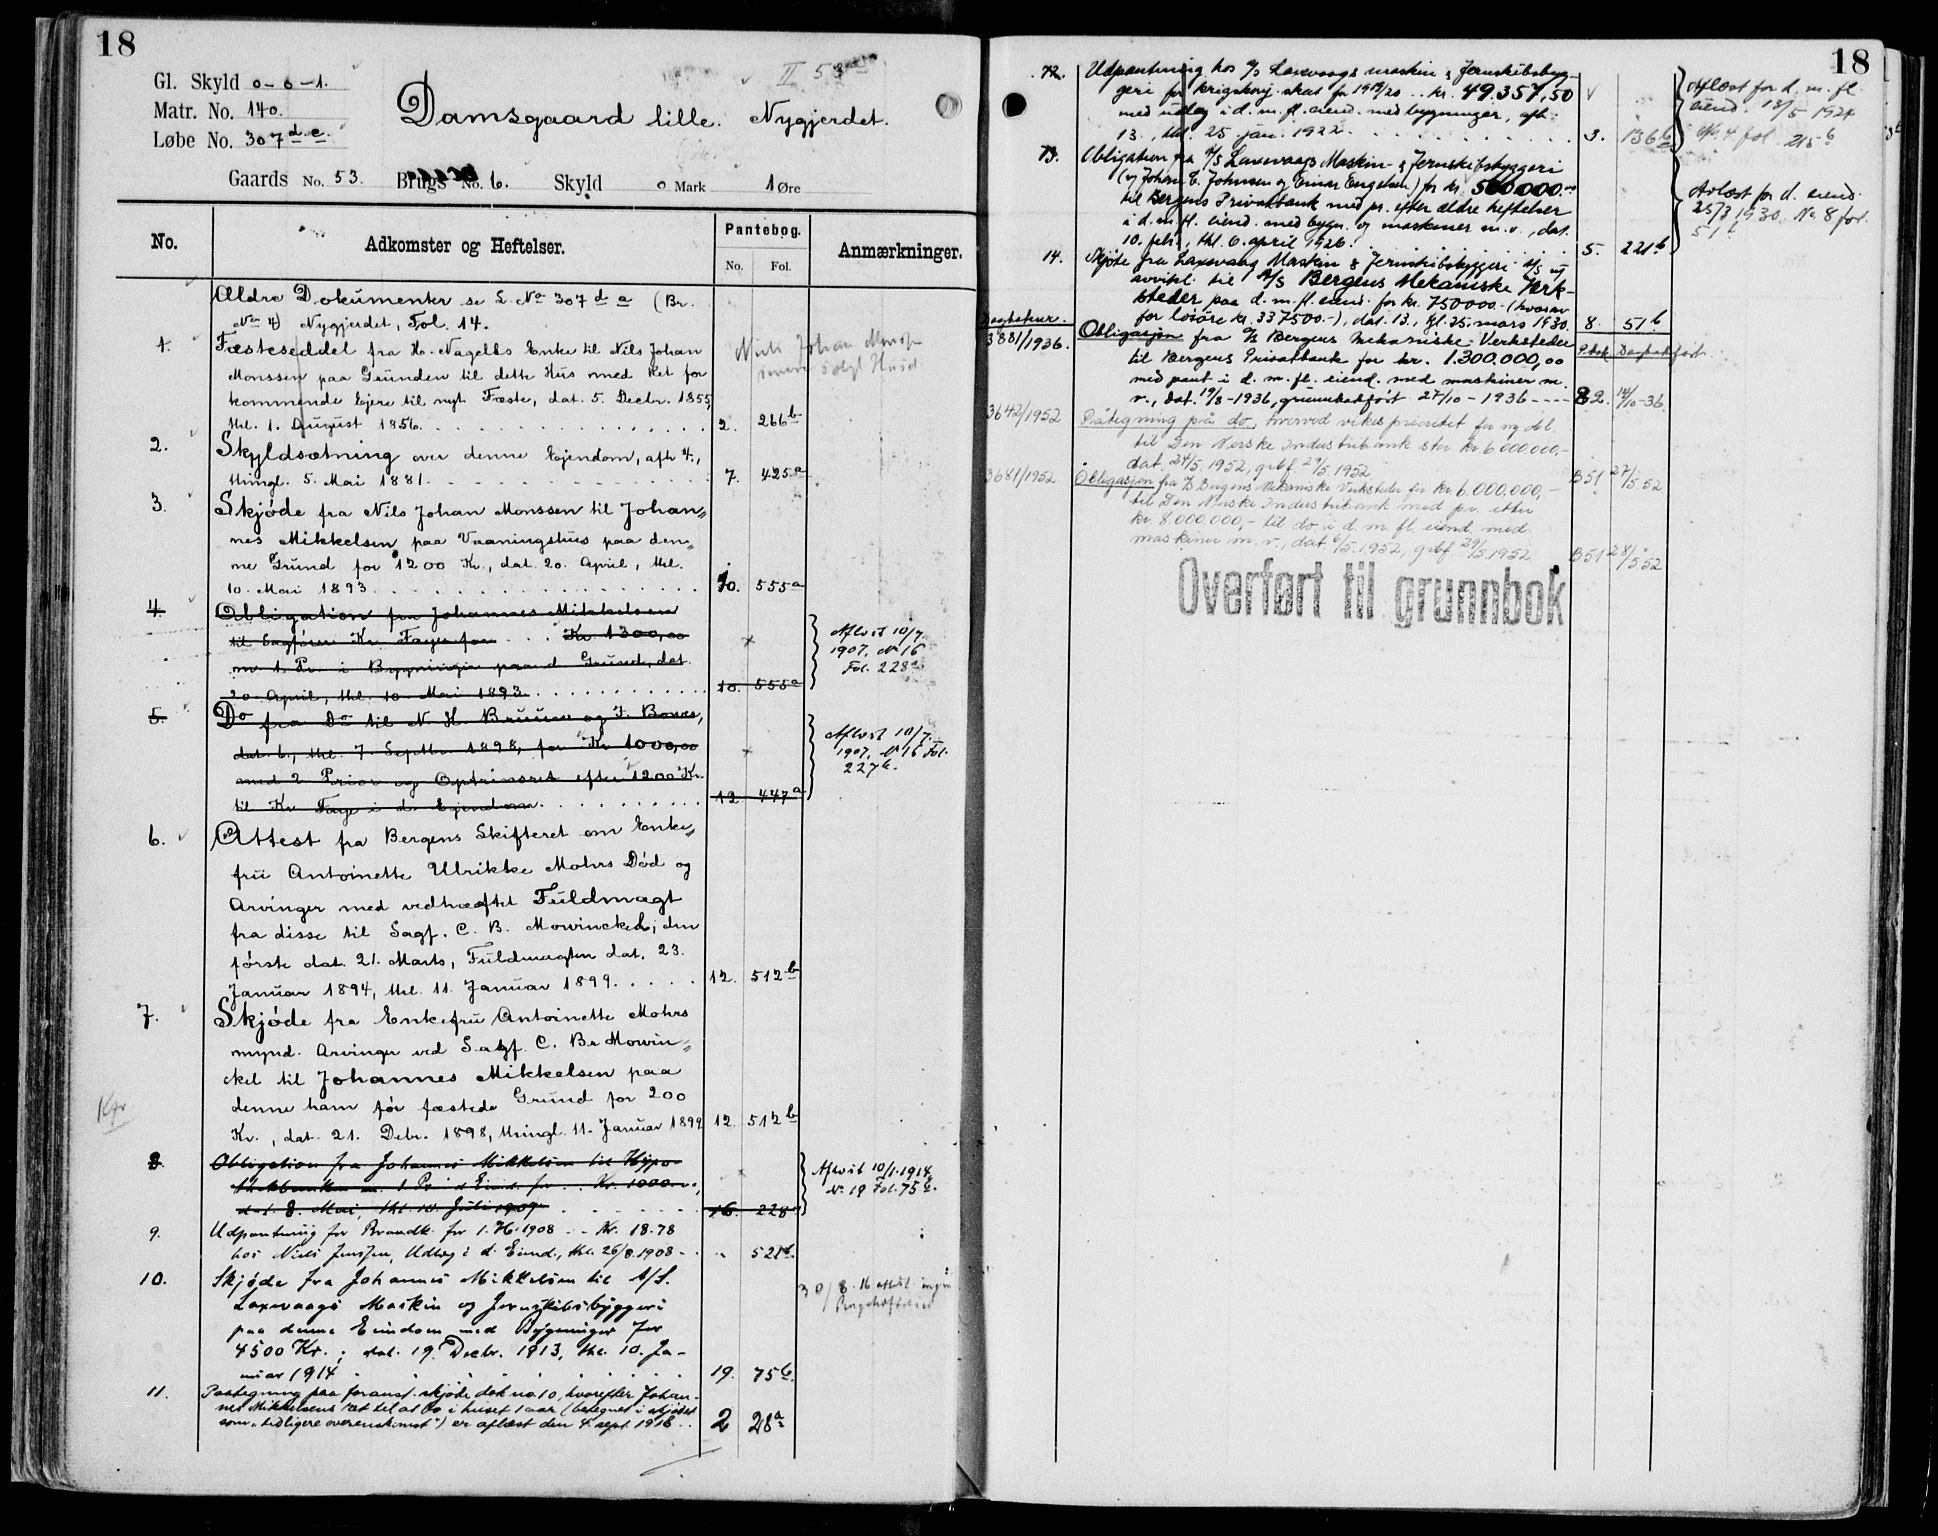 18
Gl. Skyld 0-0-1.
Matr. No. 140.
Løbe No. 307 d e.
II 53
Damsgaard lille. Nygjerdet.
Gaards No. 53. Brugs No. 6. Skyld 0 Mark 1 Øre
No. Adkomster og Heftelser. Pantebog. Anmærkninger.
No. Fol.
Ældre Dokumenter se L. No 307 d a (Br.
No 4) Nygjerdet, Fol. 14.
1. Fæsteseddel fra H. Nagells Enke til Nils Johan
Monssen paa Grunden til dette Hus med Ret for
kommende Ejere til nyt Fæste, dat. 5. Decbr. 1855,
thl. 1. August 1856. 2. 266 b
Niels Johan
solgt Huset
2. Skyldsætning over denne Ejendom, afh 4.,
thingl. 5. Mai 1881. 7. 425 a
3. Skjøde fra Nils Johan Monssen til Johan„
nes Mikkelsen paa Vaaningshus paa den„
ne Grund for 1200 Kr., dat. 20. April, thl.
10. Mai 1893 10. 555 a
4. Obligation fra Johannes Mikkelsen
til Sagfører Kr. Faye for Kr 1300,00
m 1. Pr. i Bygningen paa d Grund, dat.
20. April, thl. 10. Mai 1893 10. 555 a
Aflæst 10/7
1907, No 16
Fol. 228 a
5. Do fra Do til N. H. Bruun og J. Bowes,
dat. 6., thl. 7. Septbr 1898, for Kr 1000,00
med 2 Prior. og Optrinsret efter 1200 Kr.
til Kr Faye i d. Ejendom 12 447 a
Aflæst 10/7
1907, No 16 Fol.
227 b.
6. Attest fra Bergens Skifteret om Enke„
fru Antoinette Ulrikke Mohrs Død og
Arvinger med vedhæftet Fuldmagt
fra disse til Sagf. C. B. Mowinckel; den
første dat. 21. Marts, Fuldmagten dat. 23.
Januar 1894, thl. 11. Januar 1899. 12. 512 b
7. Skjøde fra Enkefru Antoinette Mohrs
mynd. Arvinger ved Sagf. C. Br Mowin„
ckel til Johannes Mikkelsen paa
denne ham før fæstede Grund for 200
Kr., dat. 21. Debr. 1898, thingl. 11. Januar 1899 12. 512 b
8. Obligation fra Johannes Mikkelsen til Hypo
thekbanken m. 1 Pr i d Eiend. for Kr. 1000
dat. 8. Mai, thl. 10 Juli 1907 16. 228
Aflæst 10/1.1914,
No 19 Fol. 75 b.
9. Udpantning for Brandk. for 1. H. 1908 Kr. 18.78
hos Niels Jenssen, Udlæg i d. Eiend., thl. 26/8.1908 - " 521 b.
10. Skjøde fra Johannes Mikkelsen til A/S.
Laxevaags Maskin og Jernskibsbyggeri
paa denne Eiendom med Bygninger for
4500 Kr.; dat. 19. Decbr. 1913, thl. 10. Ja-
nuar 1914 19. 75 b.
30/8. 16 attest. ingen
Pengeheftelser
11. Paategning paa foranst. skjøde dok no. 10, hvorefter Johan-
nes Mikkelsens ret til at bo i huset 1 aar (betegnet i skjødet
som „tidligere overenskomst”) er aflæst den 4. sept. 1918 2 28 a
18
12. Udpantning hos A/S Laxevaags maskin & Jernskibsbyg-
geri for krigskonj. skat for 1919/20 .. kr. 49.357,50
med udlæg i d. m. fl. eiend. med bygninger, afh.
13., thl. 25. jan. 1922 3. 136 b
Aflæst for d. m. fl.
eiend. 13/5 1924
No. 4 fol 215 b
13. Obligation fra A/S Laxevaags Maskin- & Jernskibsbyggeri
(v/ Johan E. Johnsen og Einar Engelsen) for kr. 500000.00
til Bergens Privatbank med pr. efter ældre heftelser
i d. m. fl. eiend. med bygn. og maskiner m. v., dat.
10. febr., thl. 6. april 1926. 5. 221 b
Avlæst for d. eiend.
25/3 1930. No 8 fol.
51 b
14. Skjøte fra Laxevaag Maskin & Jernskibsbyggeri A/S
avvikl. til A/S Bergens Mekaniske Verk-
steder paa d. m. fl. eiend. for kr. 750000.- (hvorav
for løsøre kr. 337500.-), dat. 13., tgl. 25. mars 1930. 8. 51 b
Dagboknr.
P.bok Dagbokført
3881/1936. Obligasjon fra A/S Bergens Mekaniske Verksteder
til Bergens Privatbank for kr. 1.300.000,00
med pant i d. m. fl. eiend. med maskiner m.
v., dat. 19/8-1936, grunnbokført 27/10-1936 ---- 82. 14/10-36.
3642/1952 Påtegning på do, hvorved vikes prioritet for ny obl.
til Den Norske Industribank stor kr. 6.000.000,-
dat. 24/5.1952, grbf. 29/5.1952 B51 27/5.52
3681/1952 Obligasjon fra A/S Bergens Mekaniske Verksteder for kr. 6.000.000,-
til Den Norske Industribank med pr. etter
kr. 8.000.000,- til do. i d. m. fl. eiend. med
maskiner m. v., dat. 6/5.1952, grbf. 29/5.1952. B51 28/5.52
Overført til grunnbok